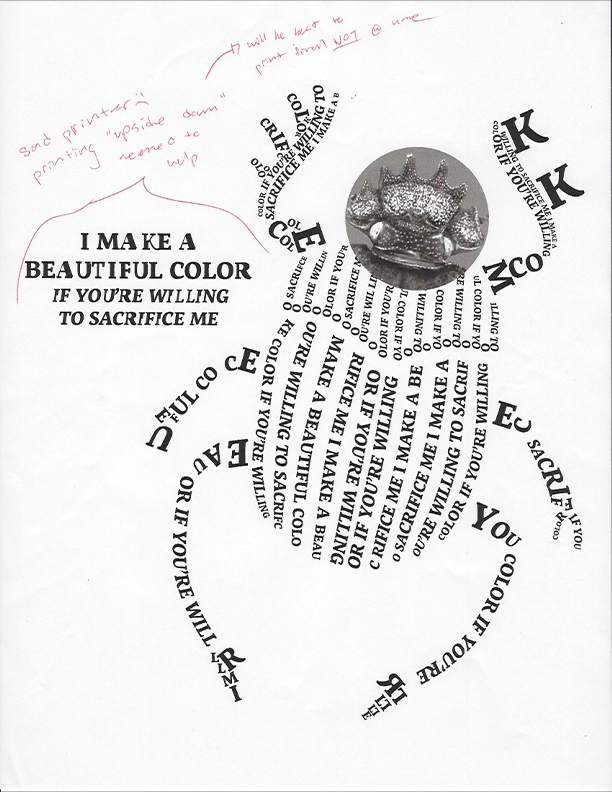 will be best to
print direct NOT @ home
Sad printer :(
printing "upside down"
needed to
help
I MAKE A
BEAUTIFUL COLOR
IF YOU'RE WILLING
TO SACRIFICE ME
COL
CRIF
COLOR IF YOU'RE WILLING TO
SACRIFICE ME I MAKE A B
K
K
WILLING TO SACRIFICE ME I MAKE A
COLOR IF YOU'RE WILLING
E
COL
M
CO
O SACRIFICE
OU'RE WILLIN
OLOR IF YOU'R
O SACRIFICE M
OLOR IF YOU'R
UL COLOR IF YO
WILLING TO
COLOR IF YO
RE WILLING TO
UL COLOR IF YO
LLING TO
KE COLOR IF YOU'RE WILLING
OU'RE WILLING TO SACRIFC
MAKE A BEAUTIFUL COLO
RIFICE ME I MAKE A BEAU
OR IF YOU'RE WILLING
OR IF YOU'RE WILLING
C RIFICE ME I MAKE A BE
O SACRIFICE ME I MAKE A
OU'RE WILLING TO SACRIF
COLOR IF YOU'RE WILLING
CE
FUL CO
E
U
EAU
OR IF YOU'RE WILL
R
LLMI
E
C
SACRIF
E IF YOU
COLOR
YOU
COLOR IF YOU'RE
R